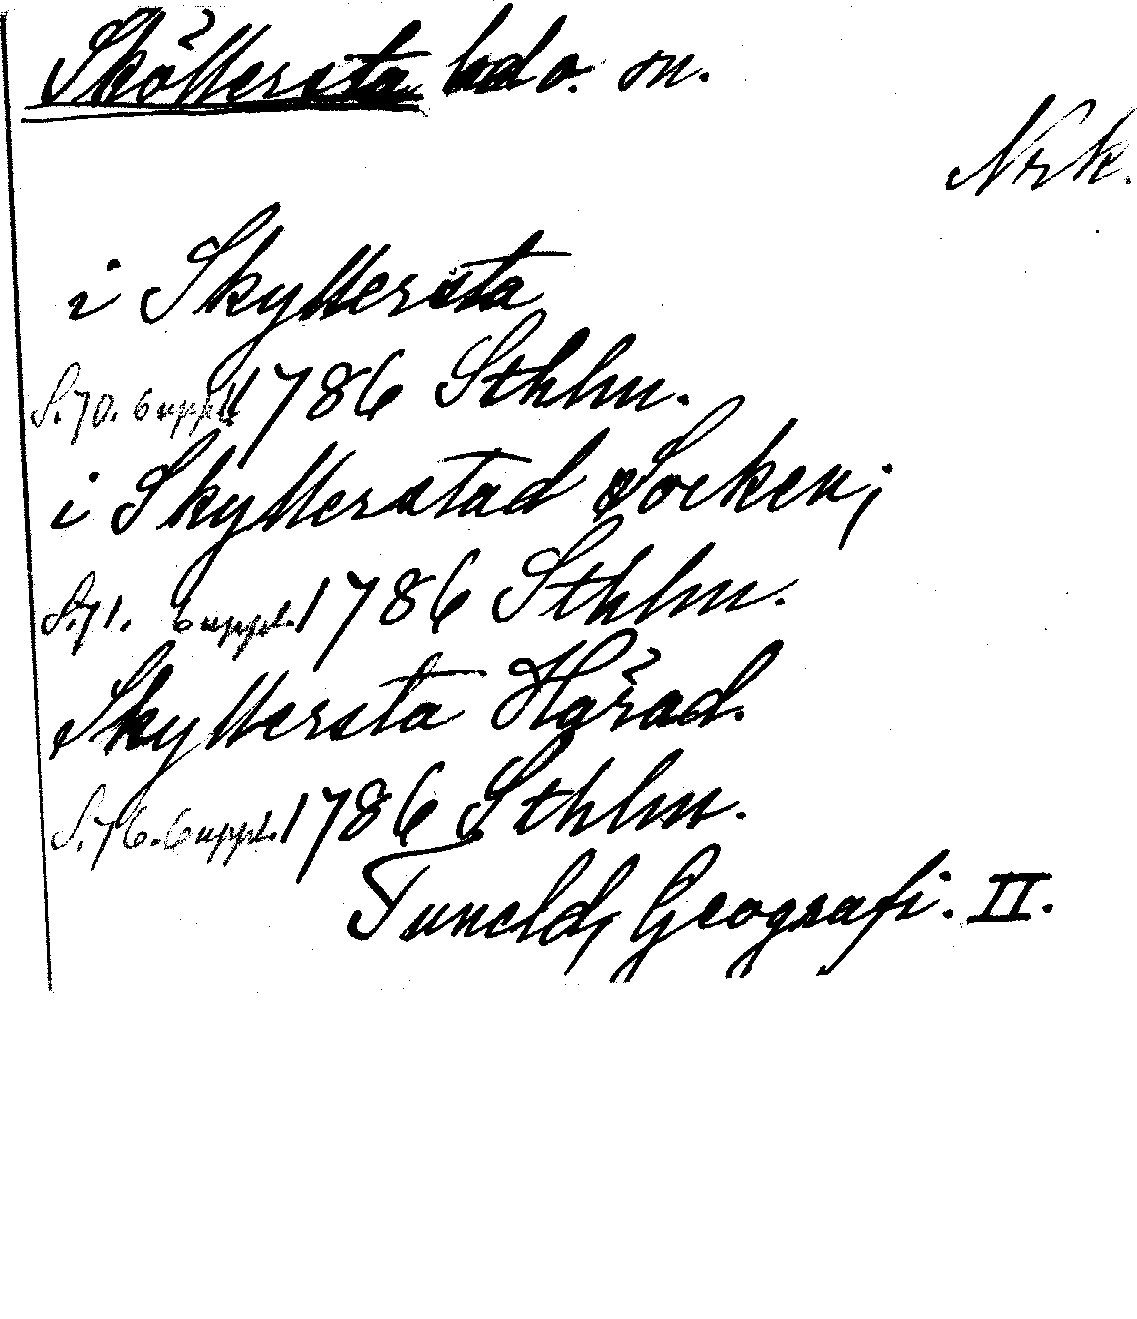 Sköllersta hd o. sn.
Nrk.
i Skyllersta
S. 70. 6 uppl. 1786 Sthlm.
i Skyllerstad Socken;
S. 71. 6 uppl. 1786 Sthlm.
Skyllersta Härad.
S. 76. 6 uppl. 1786 Sthlm.
Tuneld, Geografi. II.